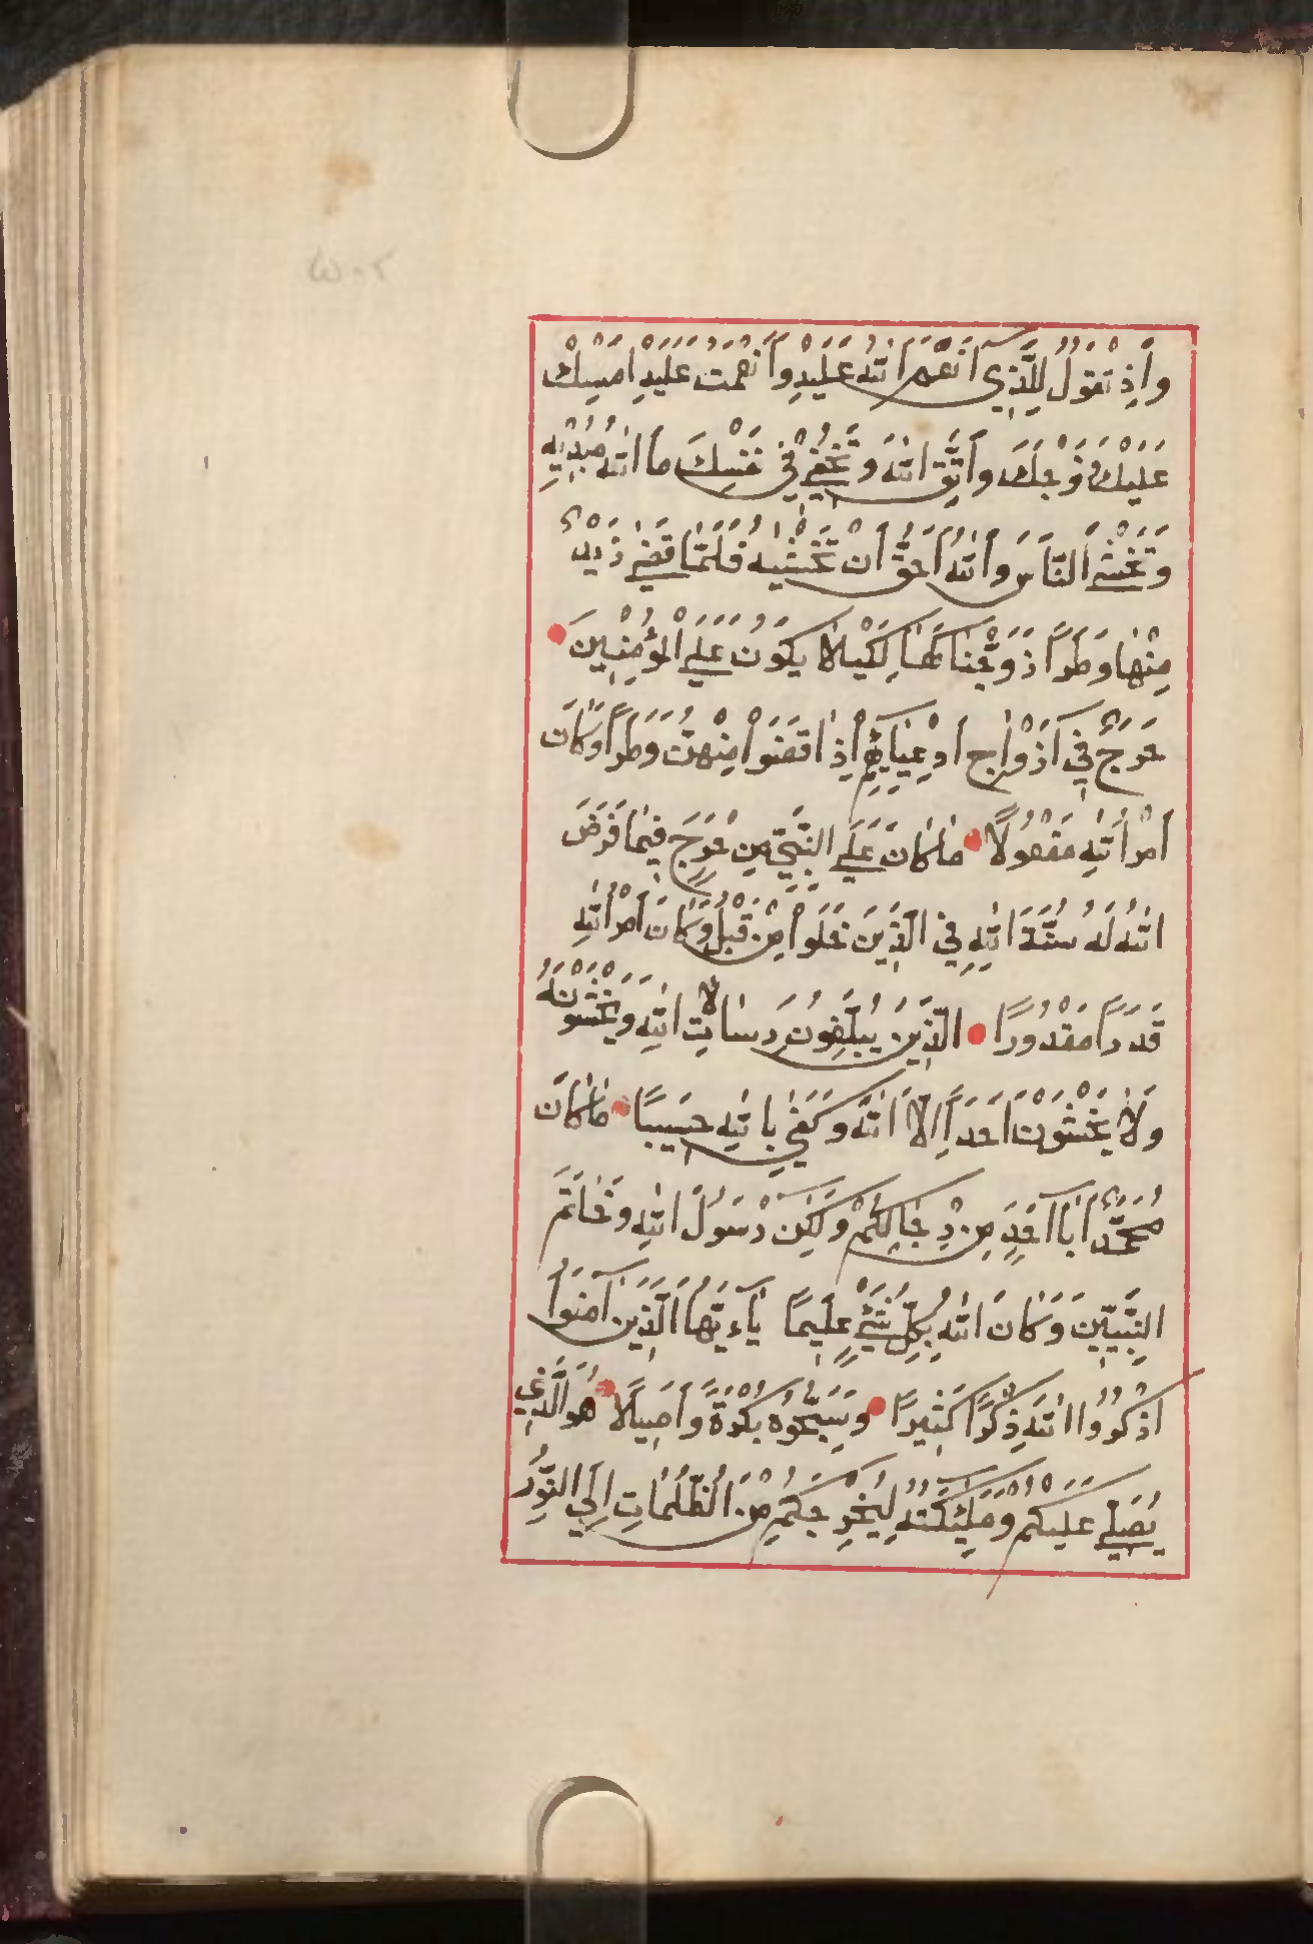 وَإِذْ تَقُولُ لِلَّذِي أَنْعَمَ اللَّهُ عَلَيْهِ وَأَنْعَمْتَ عَلَيْهِ أَمْسِكْ
عَلَيْكَ زَوْجَكَ وَاتَّقِ اللَّهَ وَتُخْفِي فِي نَفْسِكَ مَا اللَّهُ مُبْدِيهِ
وَتَخْشَى النَّاسَ وَاللَّهُ أَحَقُّ أَنْ تَخْشَيهُ فَلَمَّا قَضَى زَيْدٌ
مِنْهَا وَطَرًا زَوَّجْنَاكَهَا لِكَيْلَا يَكُونَ عَلَى الْمُؤْمِنِينَ
حَرَجٌ فِي أَزْوَاجِ أَدْعِيَايِهِمْ إِذَا قَضَوْا مِنْهُنَّ وَطَرًا وَكَانَ
أَمْرُ اللَّهِ مَفْعُولًا مَا كَانَ عَلَى النَّبِيِّ مِنْ حَرَجٍ فِيمَا فَرَضَ
اللَّهُ لَهُ سُنَّةَ اللَّهِ فِي الَّذِينَ خَلَوْا مِنْ قَبْلُ وَكَانَ أَمْرُ اللَّهِ
قَدَرًا مَقْدُورًا الَّذِينَ يُبَلِّغُونَ رِسَالَاتِ اللَّهِ وَيَخْشَوْنَهُ
وَلَا يَخْشَوْنَ أَحَدًا إِلَّا اللَّهَ وَكَفَى بِاللَّهِ حَسِيبًا مَا كَانَ
مُحَمَّدٌ أَبَا أَحَدٍ مِنْ رِجَالِكُمْ وَلَكِنْ رَسُولَ اللَّهِ وَخَاتَمَ
النَّبِيِّينَ وَكَانَ اللَّهُ بِكُلِّ شَيْءٍ عَلِيمًا يَاءَيُّهَا الَّذِينَ آمَنُوا
اذْكُرُوا اللَّهَ ذِكْرًا كَثِيرًا وَسَبِّحُوهُ بُكْرَةً وَأَصِيلًا هُوَ الَّذِي
يُصَلِّي عَلَيْكُمْ وَمَلَئِكَتُهُ لِيُخْرِجَكُمْ مِنَ الظُّلُمَاتِ إِلَى النُّورِ